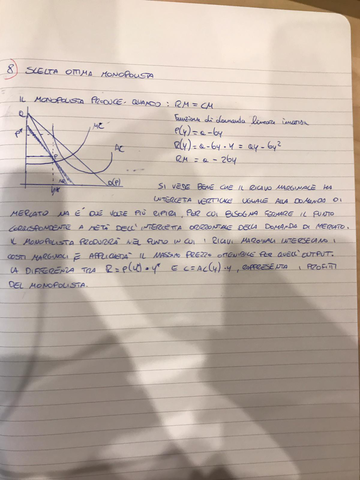 8) SCELTA OTTIMA MONOPOLISTA
IL MONOPOLISTA PRODUCE QUANDO: RM = CM
Funzione di domanda lineare inversa
P(y) = a - by
R(y) = a - by · y = ay - by²
RM = a - 2by
a
P*
MC
AC
y*
D(P)
SI VEDE BENE CHE IL RICAVO MARGINALE HA
INTERCETTA VERTICALE UGUALE ALLA DOMANDA DI
MERCATO MA È DUE VOLTE PIÙ RIPIDA, PER CUI BISOGNA SEGNARE IL PUNTO
CORRISPONDENTE A METÀ DELL'INTERCETTA ORIZZONTALE DELLA DOMANDA DI MERCATO.
IL MONOPOLISTA PRODURRÀ NEL PUNTO IN CUI I RICAVI MARGINALI INTERSECANO I
COSTI MARGINALI E APPLICHERÀ IL MASSIMO PREZZO OTTENIBILE PER QUELL'OUTPUT.
LA DIFFERENZA TRA R = P(y*) · y* E C = AC(y) · y, RAPPRESENTA I PROFITTI
DEL MONOPOLISTA.